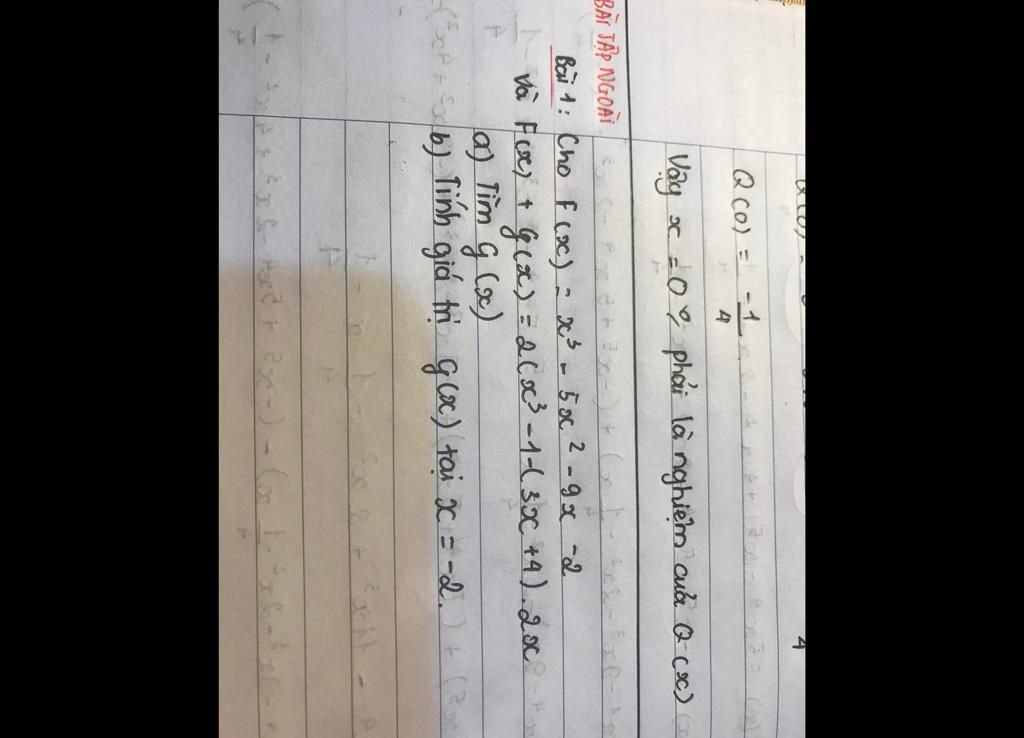 Q(0) = -1/4
Vậy x = 0 % phải là nghiệm của Q(x)
BÀI TẬP NGOÀI
Bài 1: Cho F(x) = x³ - 5x² - 9x - 2
Và F(x) + G(x) = 2(x³ - 1 - (3x + 4). 2x
a) Tìm G(x)
b) Tính giá trị G(x) tại x = -2.